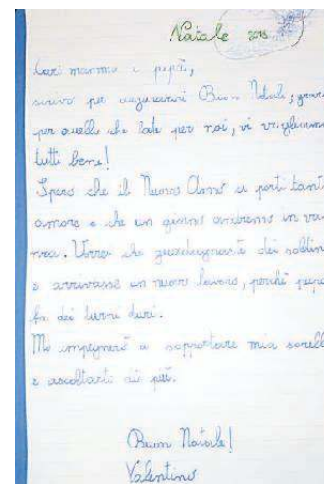 Natale 2015
Cari mamma e papà,
scrivo per augurarvi Buon Natale, grazie
per quello che fate per noi, vi vogliamo
tutti bene!
Spero che il Nuovo Anno ci porti tanto
amore e che un giorno andremo in
. Vorrei che guadagnaste dei soldini
e arrivasse un nuovo lavoro, perché papà
fa dei turni duri.
Mi impegnerò a sopportare mia sorella
e ascoltarti di più.
Buon Natale!
Valentino